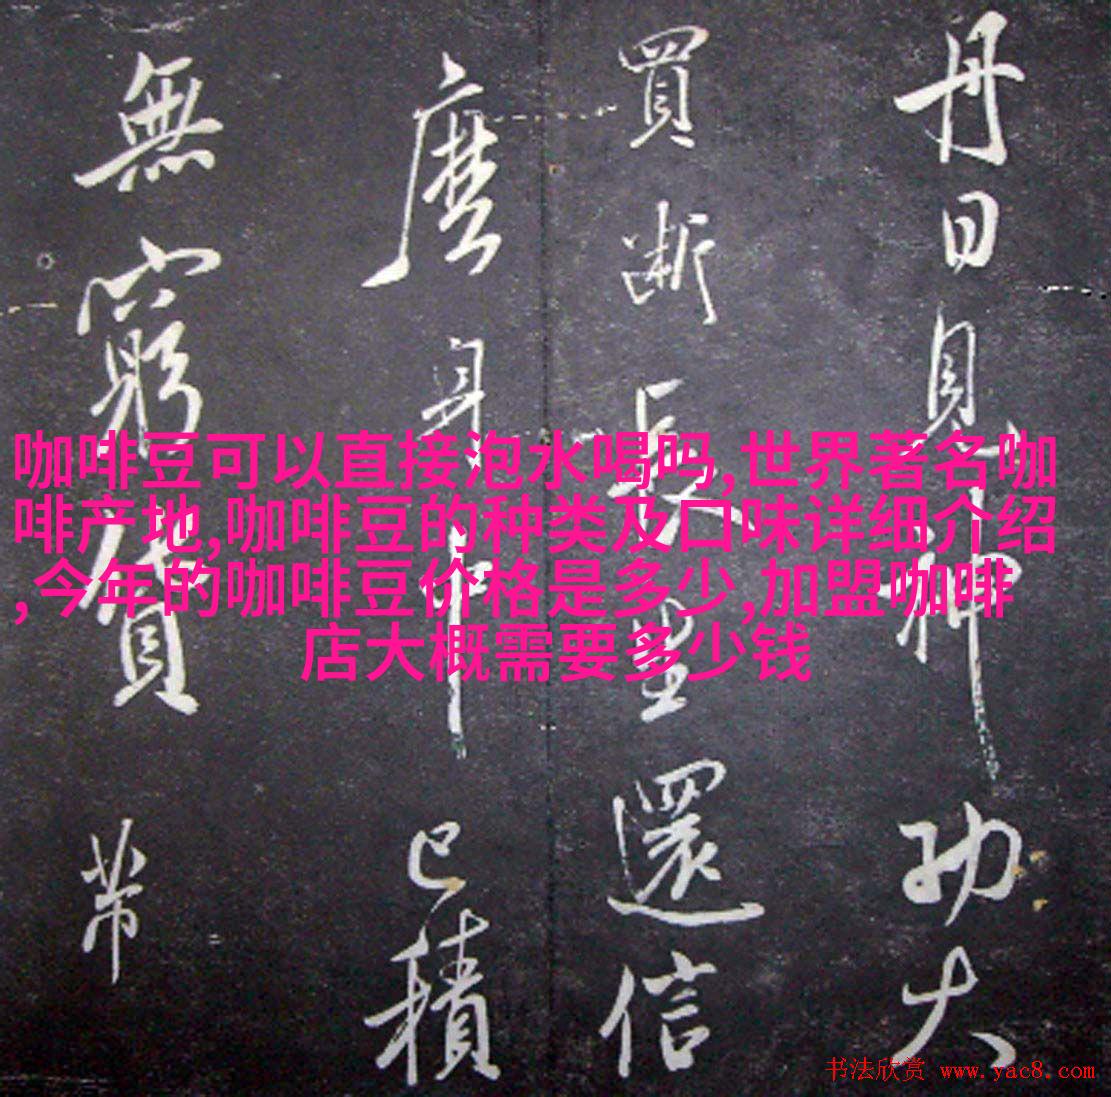 丹日見神功大
買斷長還信
麼身中已積
無窮貨帶
咖啡豆可以直接泡水喝吗,世界著名咖
啡产地,咖啡豆的种类及口味详细介绍
,今年的咖啡豆价格是多少,加盟咖啡
店大概需要多少钱
书法欣赏 www.yac8.com